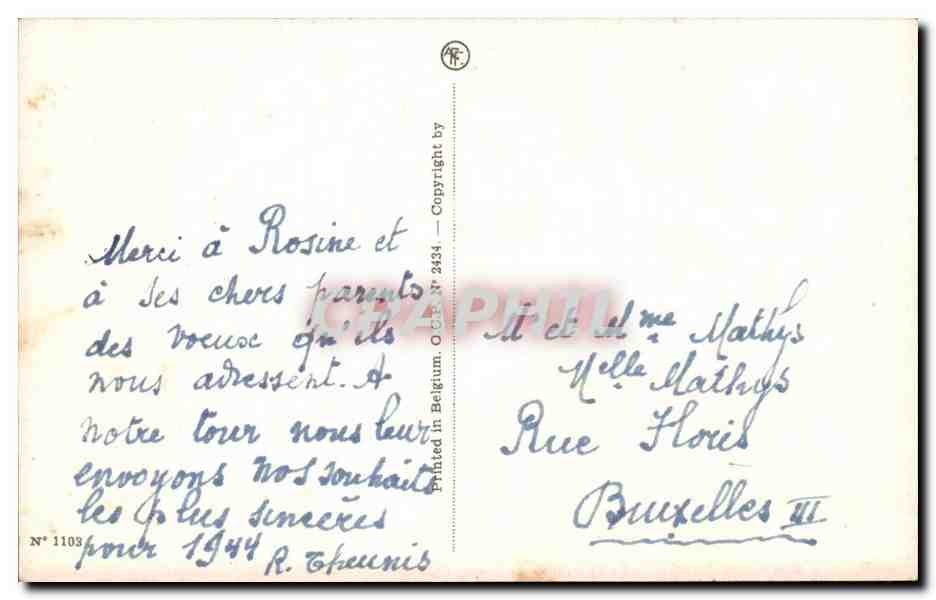 Merci à Rosine et
à ses chers parents
des voeux qu'ils
nous adressent. A
notre tour nous leur
envoyons nos souhaits
les plus sincères
pour 1944
R. Theunis
N° 1103
Printed in Belgium. O.C.P. N° 2434. — Copyright by
CPAPHIL
M et Mme Mathys
Melle Mathys
Rue Floris
Bruxelles III